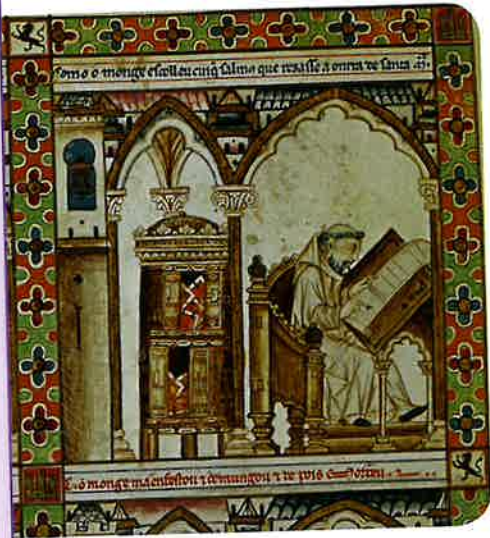 Como o monge escolleu cinq salmos que rezasse a onrra de santa m̃.
E o monge manenfestou ⁊ comungou ⁊ de pois